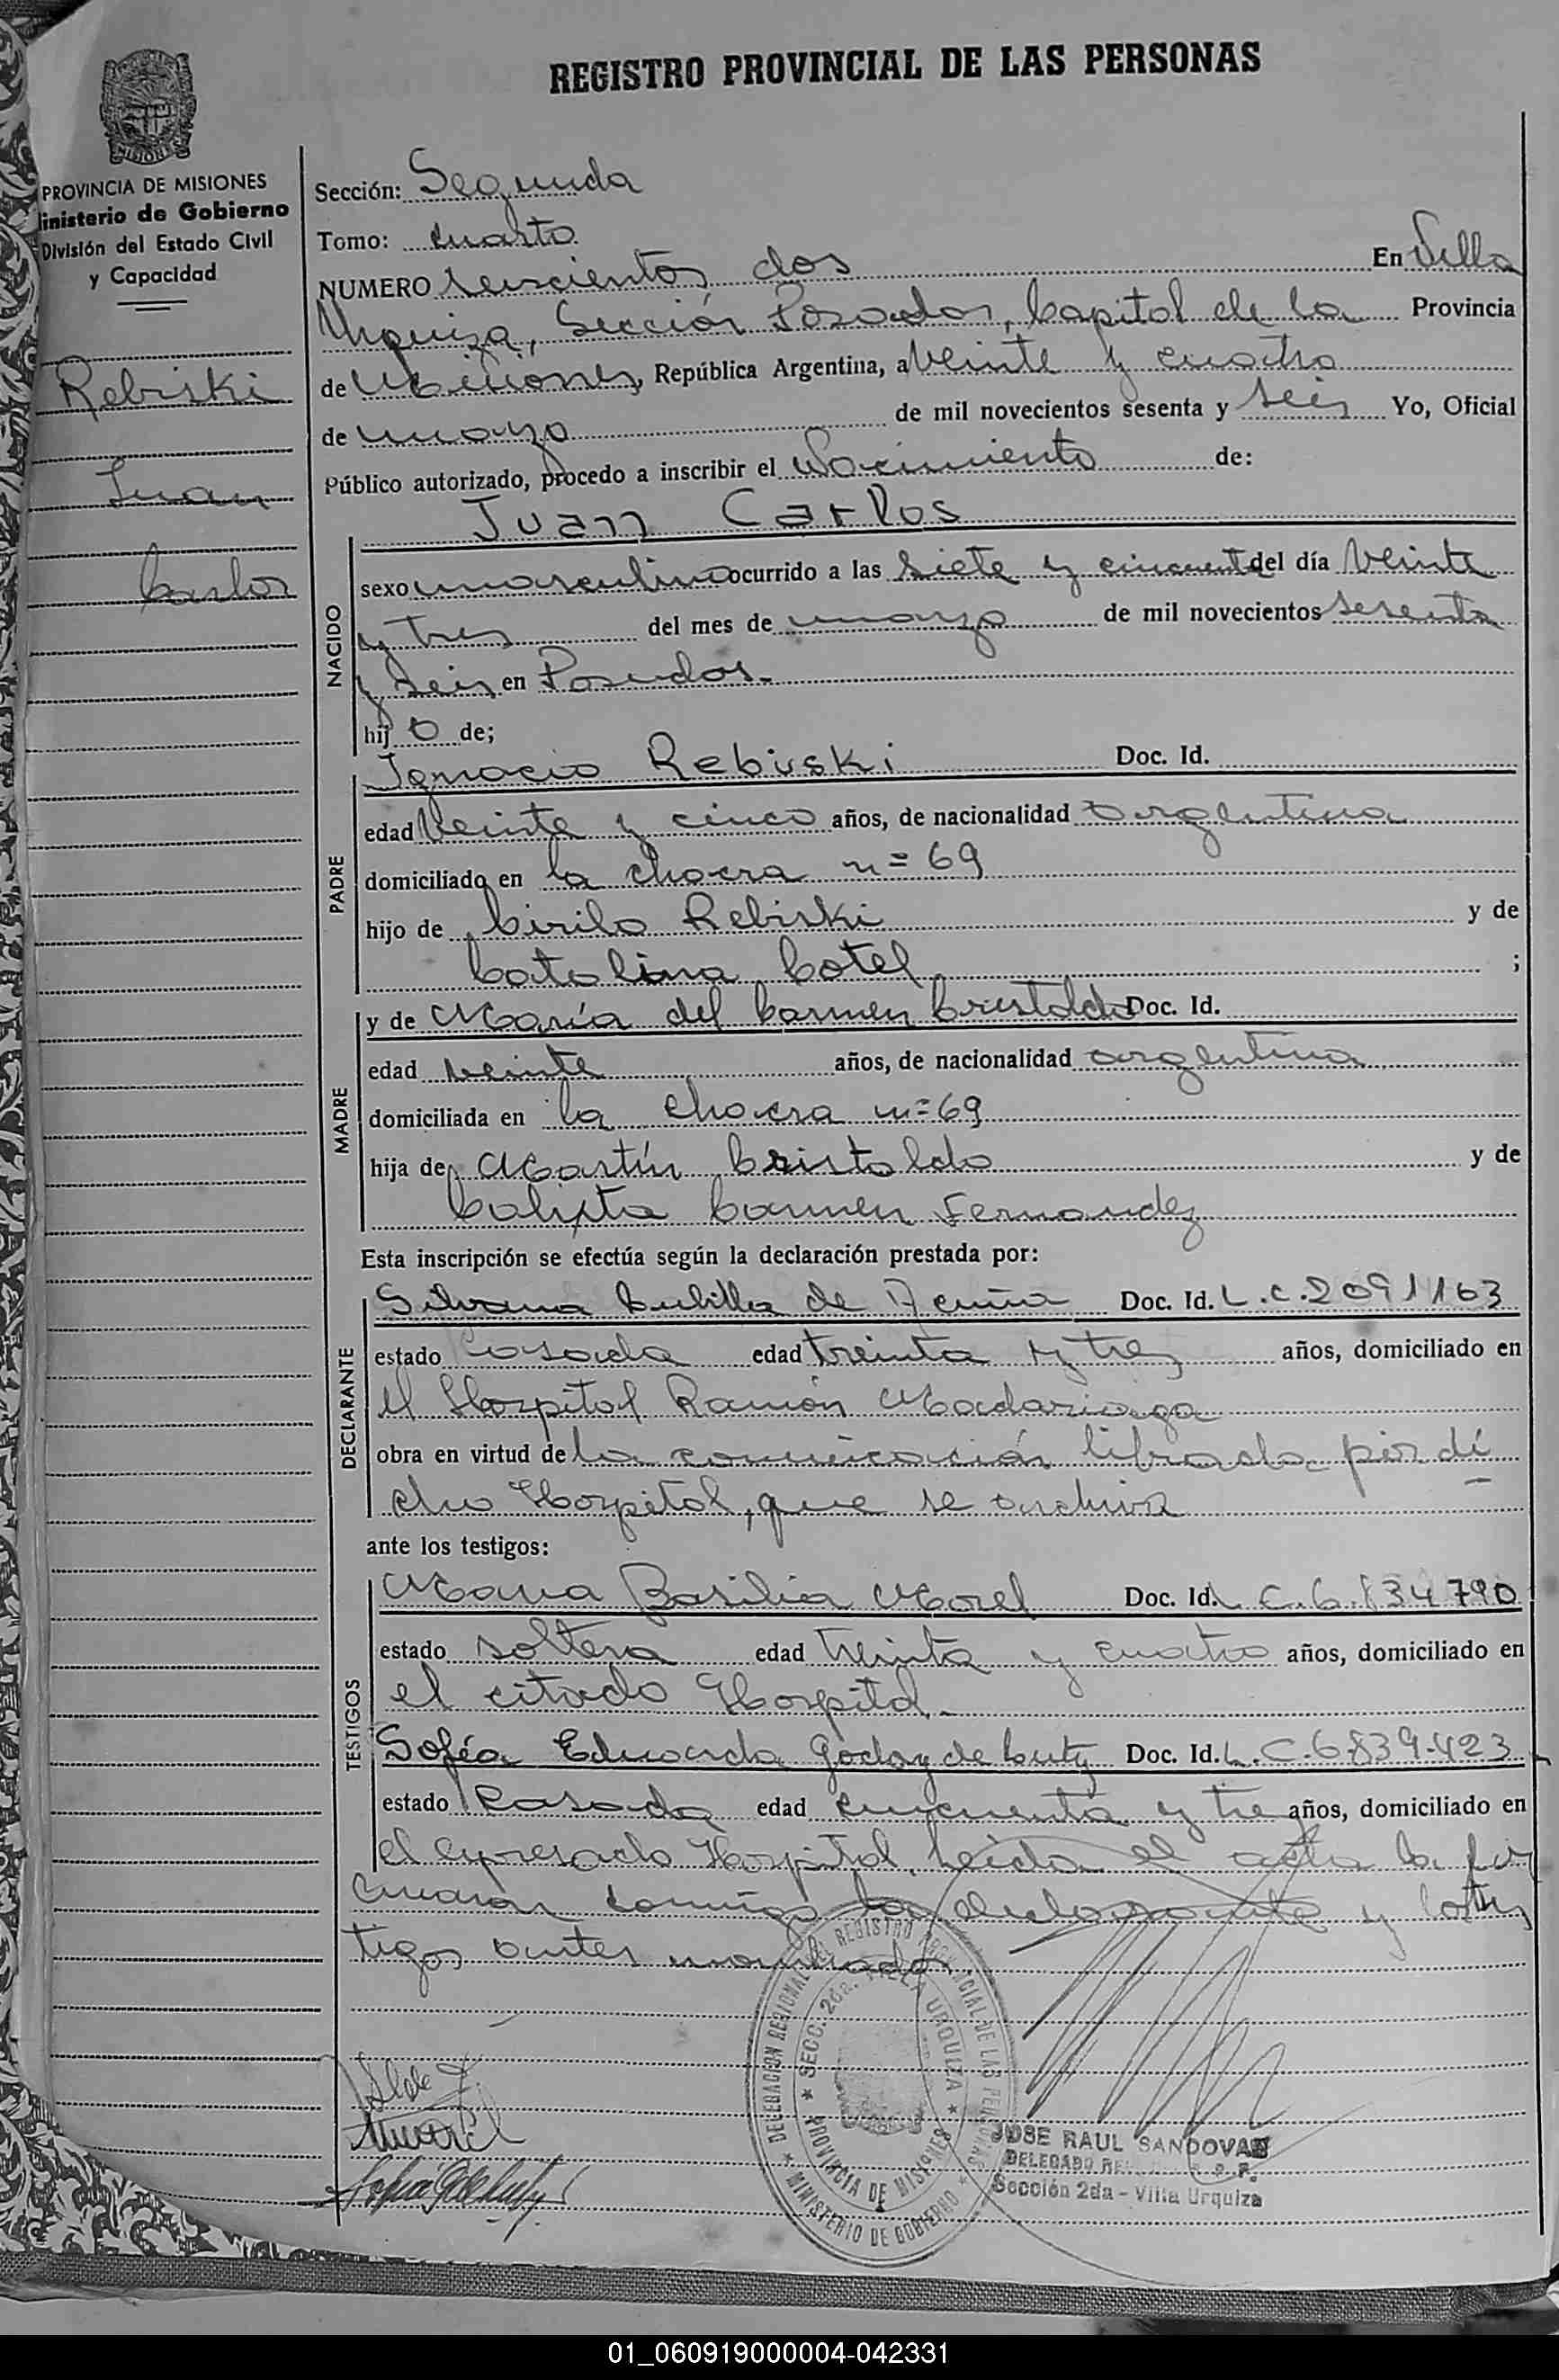 REGISTRO PROVINCIAL DE LAS PERSONAS
MISIONES
PROVINCIA DE MISIONES
inisterio de Gobierno
División del Estado Civil
y Capacidad
Rebiski
Juan
Carlos
Sección: Segunda
Tomo: cuarto
NUMERO seiscientos dos En Villa
Urquiza, Sección Posadas, Capital de la Provincia
de Misiones, República Argentina, a veinte y cuatro
de mayo de mil novecientos sesenta y seis Yo, Oficial
Público autorizado, procedo a inscribir el Nacimiento de:
Juan Carlos
NACIDO
sexo masculino ocurrido a las siete y cincuenta del día veinte
y tres del mes de marzo de mil novecientos sesenta
y seis en Posadas.
hij o de;
PADRE
Ignacio Rebiski Doc. Id.
edad veinte y cinco años, de nacionalidad argentina
domiciliado en la chacra n= 69
hijo de Cirilo Rebiski y de
Catalina Cotel ;
MADRE
y de María del Carmen Cristaldo Doc. Id.
edad veinte años, de nacionalidad argentina
domiciliada en la chacra n= 69
hija de Martín Cristaldo y de
Calixta Carmen Fernandez
Esta inscripción se efectúa según la declaración prestada por:
DECLARANTE
Silvana Cubilla de Acuña Doc. Id. L.C. 2091163
estado Casada edad treinta y tres años, domiciliado en
el Hospital Ramón Madariaga
obra en virtud de la comunicación librada por di
cho Hospital, que se archiva
ante los testigos:
TESTIGOS
Maria Basilia Morel Doc. Id. L.C. 790
estado soltera edad treinta y cuatro años, domiciliado en
el citado Hospital.
Sofía Eduarda Godoy de Doc. Id. L.C. 6.839.423
estado Casada edad cincuenta y tre años, domiciliado en
el expresado Hospital, Leida el acta la fir
maron conmigo la declarante y los tes
tigos antes nombrados
DELEGACION REGIONAL DEL REGISTRO PROVINCIAL DE LAS PERSONAS
SECC. 2da. VILLA URQUIZA
PROVINCIA DE MISIONES
MINISTERIO DE GOBIERNO
JOSE RAUL SANDOVAL
DELEGADO
Sección 2da - Villa Urquiza
01_060919000004-042331